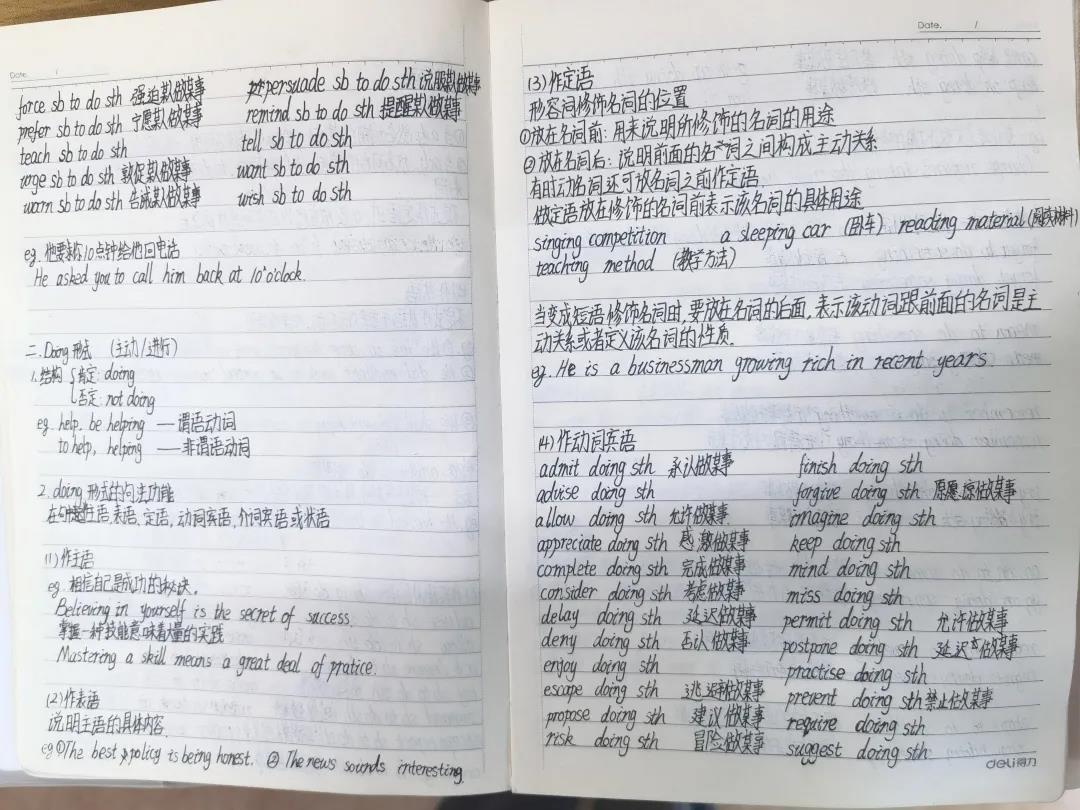 Date. /
force sb to do sth 强迫某人做某事 persuade sb to do sth 说服某人做某事
prefer sb to do sth 宁愿某人做某事 remind sb to do sth 提醒某人做某事
teach sb to do sth tell sb to do sth
urge sb to do sth 敦促某人做某事 want sb to do sth
warn sb to do sth 告诫某人做某事 wish sb to do sth
eg. 他要求你10点钟给他回电话
He asked you to call him back at 10 o'clock.
二. Doing 形式 (主动/进行)
1. 结构 { 肯定: doing
否定: not doing
eg. help, be helping —谓语动词
to help, helping —非谓语动词
2. doing 形式的句法功能
主语, 表语, 定语, 动词宾语, 介词宾语或状语
(1) 作主语
eg. 相信自己是成功的秘诀.
Believing in yourself is the secret of success.
掌握一种技能意味着大量的实践
Mastering a skill means a great deal of pratice.
(2) 作表语
说明主语的具体内容.
eg ①The best policy is being honest. ② The news sounds interesting.
Date. /
(3) 作定语
形容词修饰名词的位置
①放在名词前: 用来说明所修饰的名词的用途
②放在名词后: 说明前面的名词之间构成主动关系
有时动名词还可放名词之前作定语.
做定语放在修饰的名词前表示该名词的具体用途
singing competition a sleeping car (卧车) reading material (阅读材料)
teaching method (教学方法)
当变成短语修饰名词时, 要放在名词的后面, 表示该动词跟前面的名词是主
动关系或者定义该名词的性质.
eg. He is a bustnessman growing rich in recent years.
(4) 作动词宾语
admit doing sth 承认做某事 finish doing sth
advise doing sth forgive doing sth 原谅做某事
allow doing sth 允许做某事. imagine doing sth
appreciate doing sth 感激做某事 keep doing sth
complete doing sth 完成做某事 mind doing sth
consider doing sth 考虑做某事 miss doing sth
delay doing sth 延迟做某事 permit doing sth 允许做某事
deny doing sth 否认做某事 postpone doing sth 延迟做某事
enjoy doing sth practise doing sth
escape doing sth 逃避做某事 prevent doing sth 禁止做某事
propose doing sth 建议做某事 require doing sth
risk doing sth 冒险做某事 suggest doing sth
deli得力